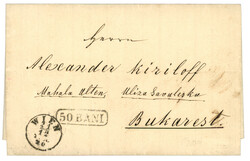 Herrn
Alexander Kiriloff
Mahala Olteni, Uliza Savulesku
Bukarest.
50 BANI
WIEN